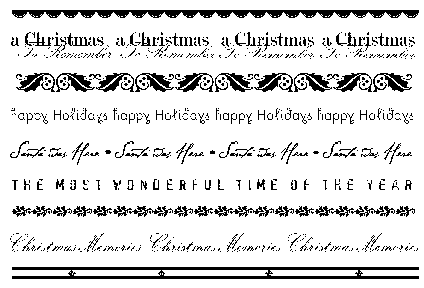 a Christmas a Christmas a Christmas a Christmas
To Remember To Remember To Remember To Remember
happy Holidays happy Holidays happy Holidays happy Holidays
Santa was Here • Santa was Here • Santa was Here • Santa was Here
THE MOST WONDERFUL TIME OF THE YEAR
Christmas Memories Christmas Memories Christmas Memories